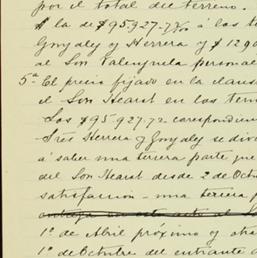 por el total del terreno.
á la de $95,927-72/00 á los
Gonzalez y Herrera y $1290
al Sor Valenzuela personal
5ª El precio fijado en la clausu
el Sor Hearst en los ter
Los $95,927.72 correspondien
Sres Herrera y Gonzalez se divi
á saber una tercera parte que
del Sor Hearst desde 2 de Octu
satisfaccion - una tercera p
1º de Abril próximo y otra
1º de Octubre del entrante a